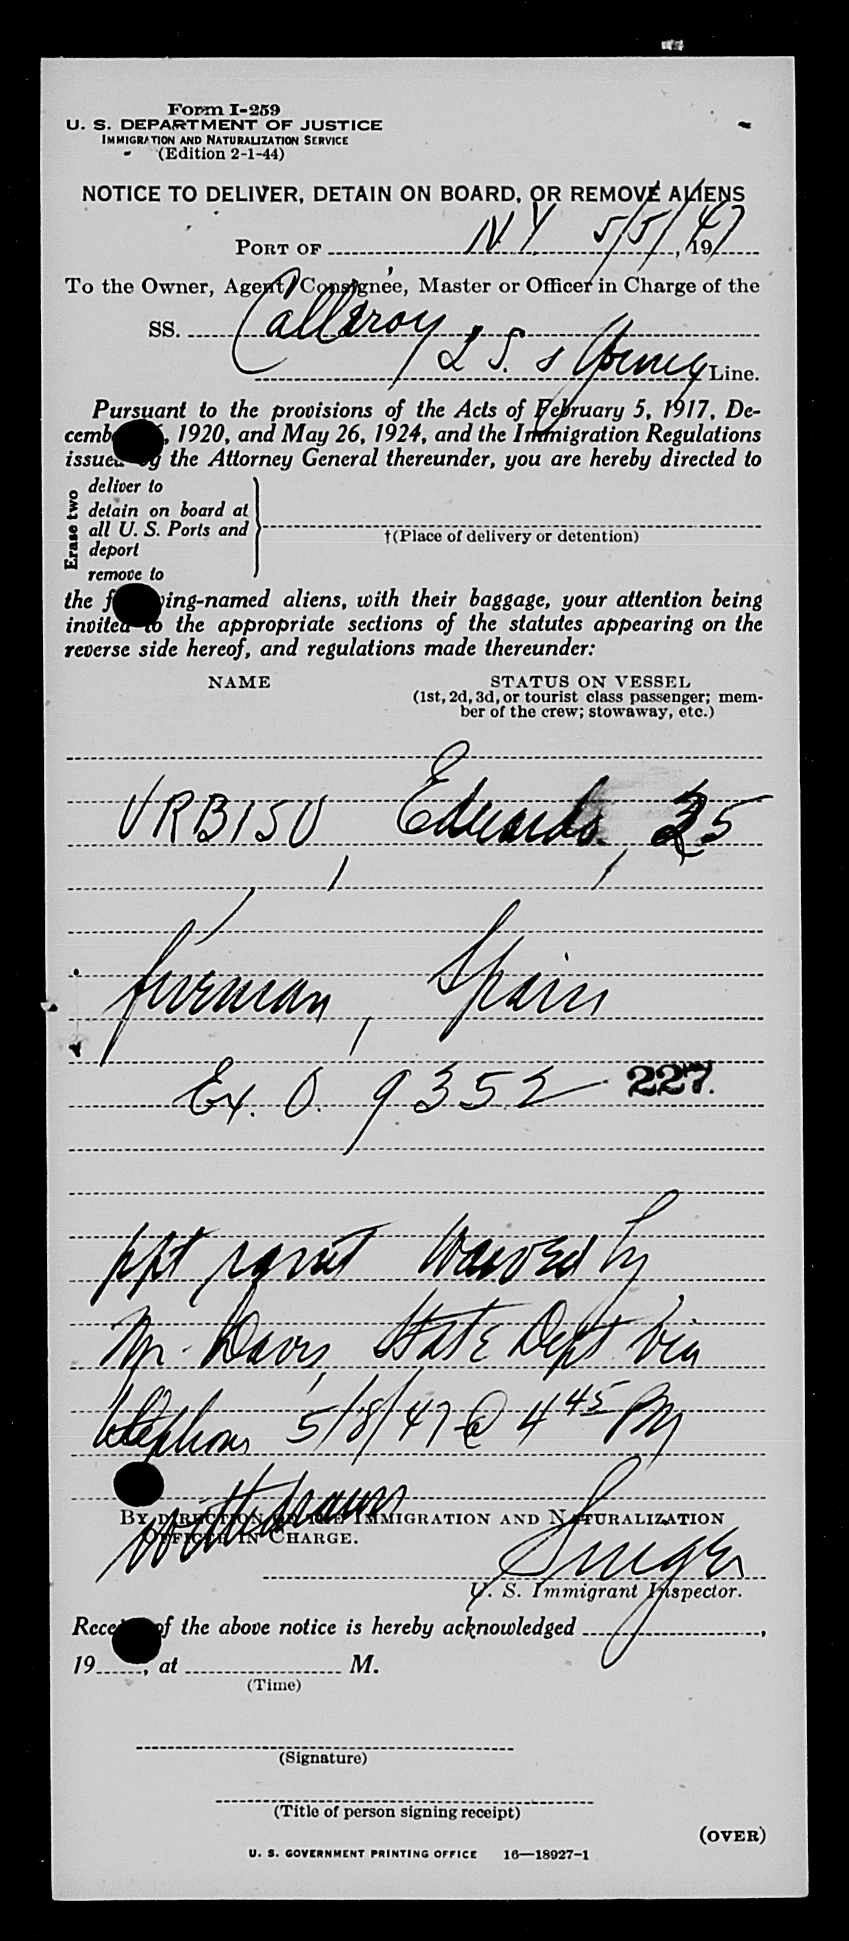 Form I-259
U. S. DEPARTMENT OF JUSTICE
IMMIGRATION AND NATURALIZATION SERVICE
(Edition 2-1-44)
NOTICE TO DELIVER, DETAIN ON BOARD, OR REMOVE ALIENS
PORT OF N Y 5/5/, 1947
To the Owner, Agent, Consignee, Master or Officer in Charge of the
SS.
Line.
Pursuant to the provisions of the Acts of February 5, 1917, De-
cemb , 1920, and May 26, 1924, and the Immigration Regulations
issued by the Attorney General thereunder, you are hereby directed to
Erase two
deliver to
detain on board at
all U. S. Ports and
deport
remove to
†(Place of delivery or detention)
the f ing-named aliens, with their baggage, your attention being
invited to the appropriate sections of the statutes appearing on the
reverse side hereof, and regulations made thereunder:
NAME STATUS ON VESSEL
(1st, 2d, 3d, or tourist class passenger; mem-
ber of the crew; stowaway, etc.)
URBISU, Eduardo, 35
fireman, Spain
Ex. O. 9352 227.
ppt waived by
Mr. Davis, State Dept via
telephone 5/8/47 @ 4 45 PM
withdrawn
BY DIRECTION OF THE IMMIGRATION AND NATURALIZATION
OFFICER IN CHARGE.
Singer
U. S. Immigrant Inspector.
Rece of the above notice is hereby acknowledged ,
19 , at M.
(Time)
(Signature)
(Title of person signing receipt)
(OVER)
U. S. GOVERNMENT PRINTING OFFICE 16—18927-1